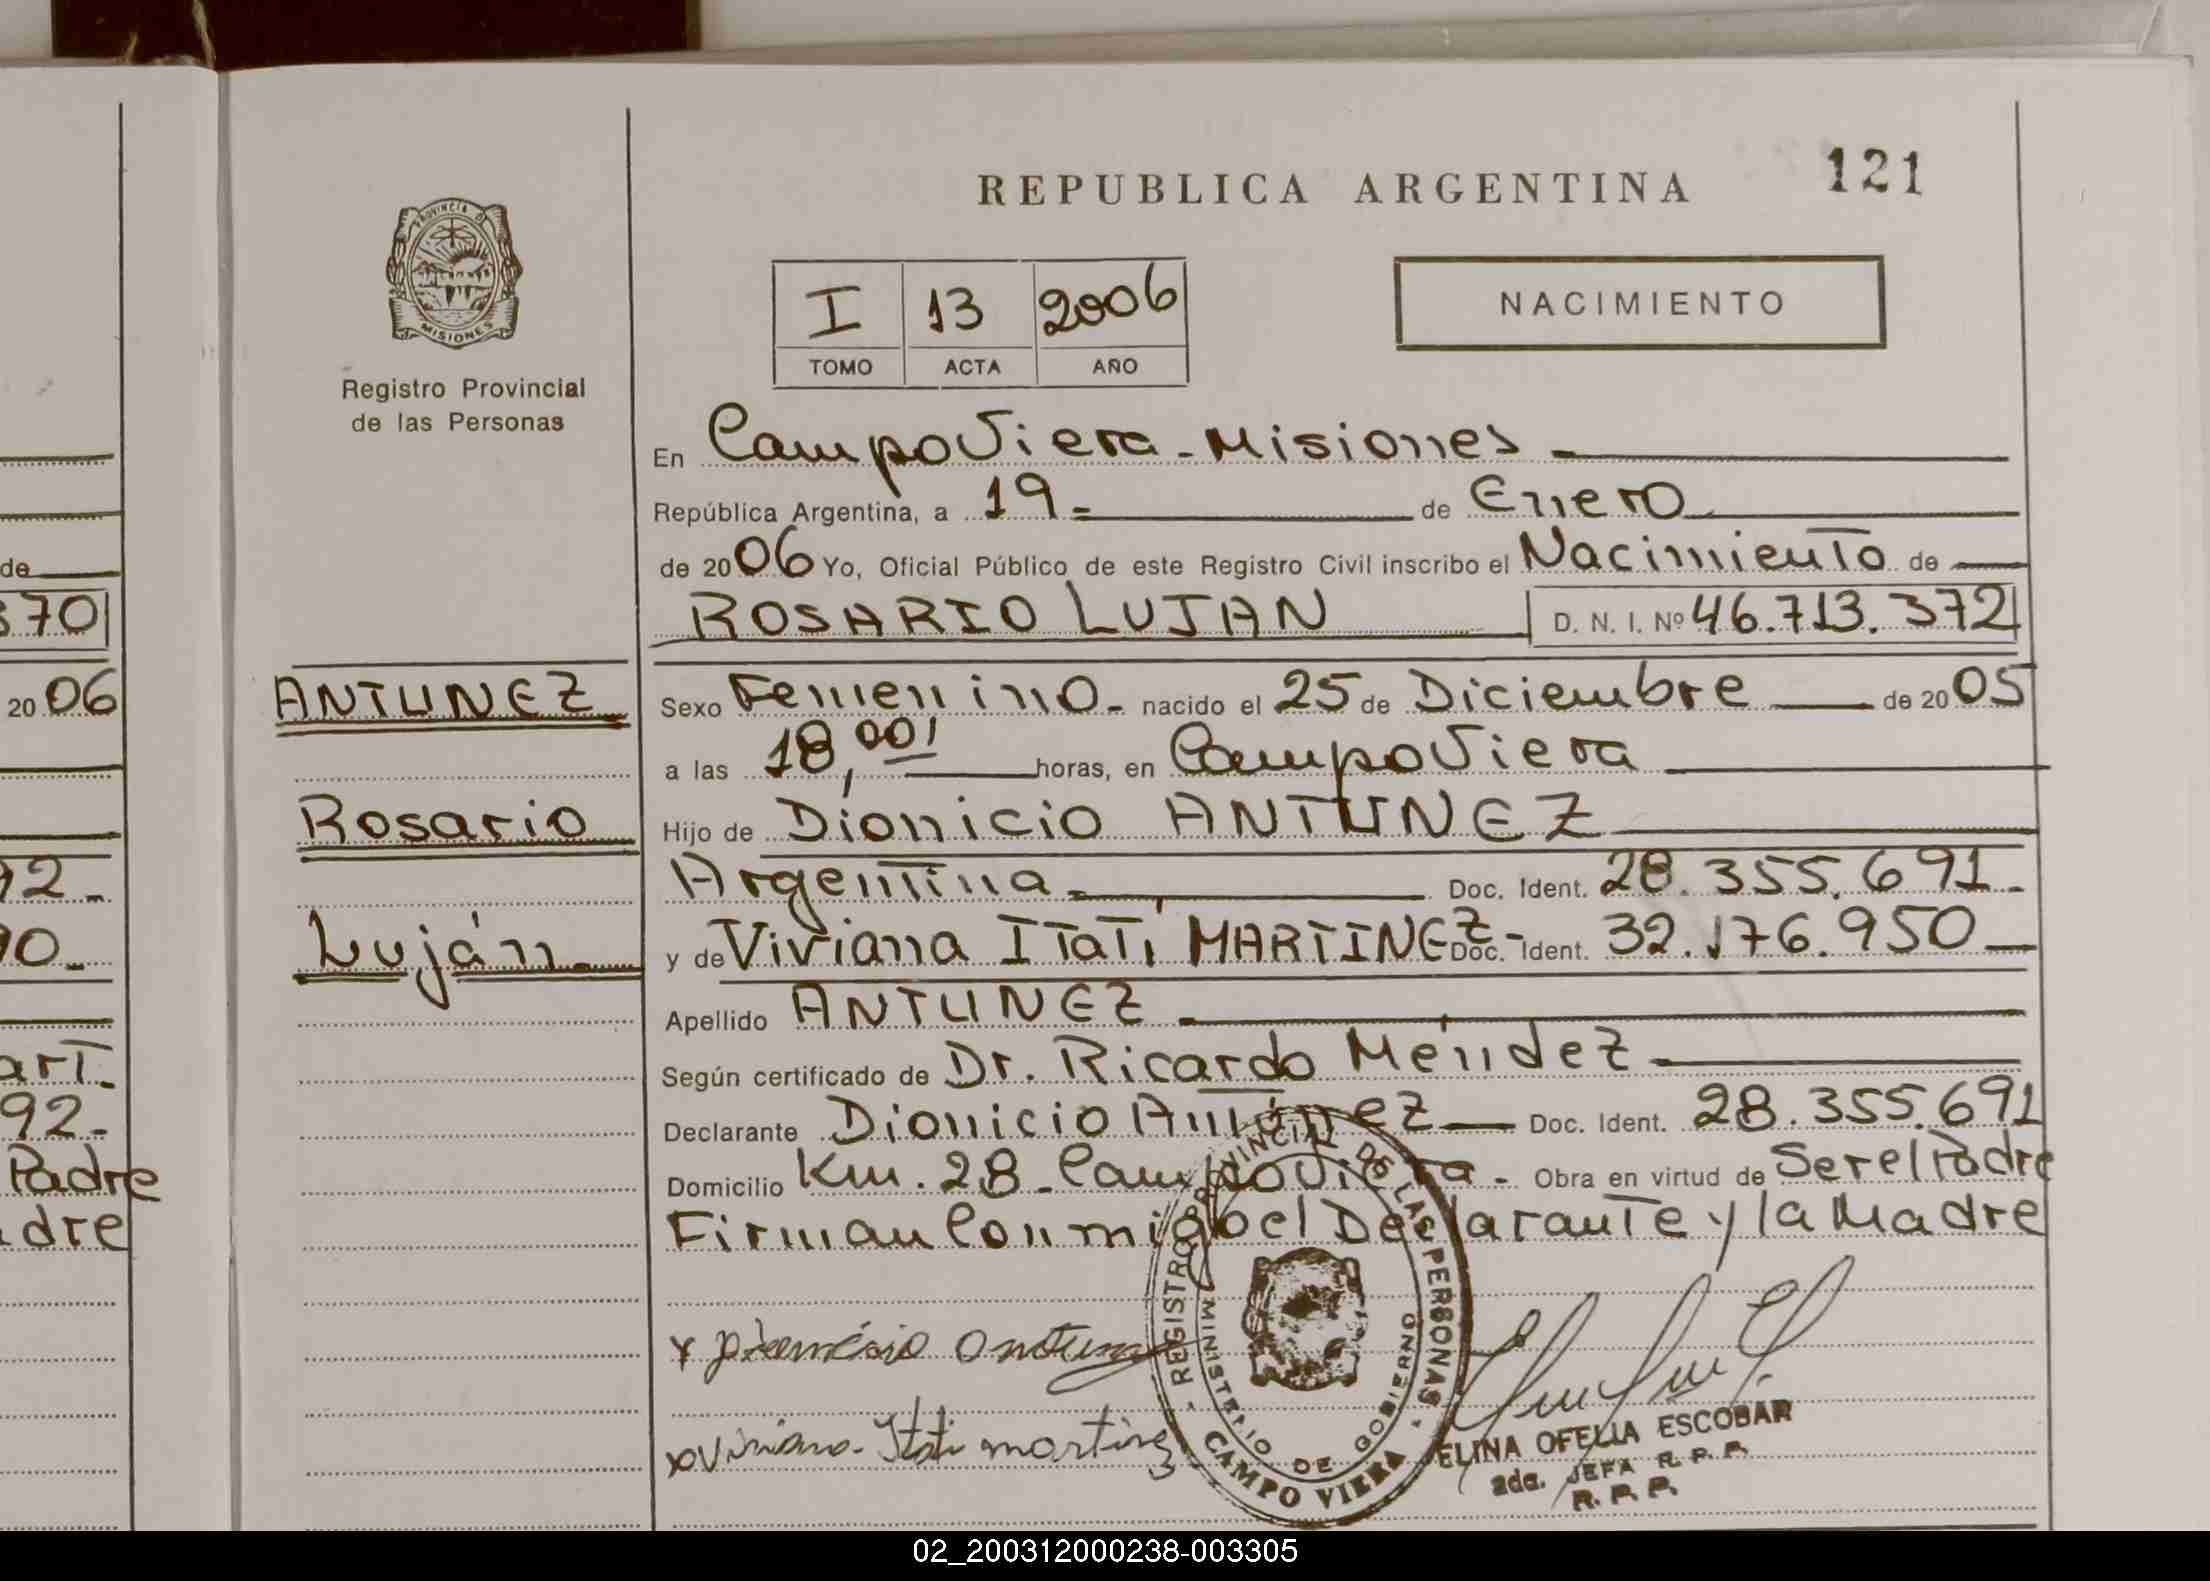 REPUBLICA ARGENTINA
121
PROVINCIA D
MISIONES
Registro Provincial
de las Personas
I 13 2006
TOMO ACTA AÑO
NACIMIENTO
En Campo Viera - Misiones
República Argentina, a 19 - de Enero
de 2006 Yo, Oficial Público de este Registro Civil inscribo el Nacimiento de
ROSARIO LUJAN D. N. I. Nº 46.713.372
ANTUNEZ
Rosario
Luján
Sexo Femenino - nacido el 25 de Diciembre de 2005
a las 18,00 horas, en Campo Viera
Hijo de Dionicio ANTUNEZ
Argentina - Doc. Ident. 28.355.691 -
y de Viviana Itatí MARTINEZ - Doc. Ident. 32.176.950
Apellido ANTUNEZ
Según certificado de Dr. Ricardo Méndez
Declarante Dionicio Antúnez Doc. Ident. 28.355.691
Domicilio Km. 28 - Campo Viera - Obra en virtud de Ser el Padre
Firman Conmigo el Declarante y la Madre
Viviana Itati martinez
REGISTRO PROVINCIAL DE LAS PERSONAS
MINISTERIO DE GOBIERNO
CAMPO VIERA
ELINA OFELIA ESCOBAR
2da. JEFA R. P. P.
R. P. P.
de
370
20 06
92 -
90 -
art.
92 -
Padre
adre
02_200312000238-003305